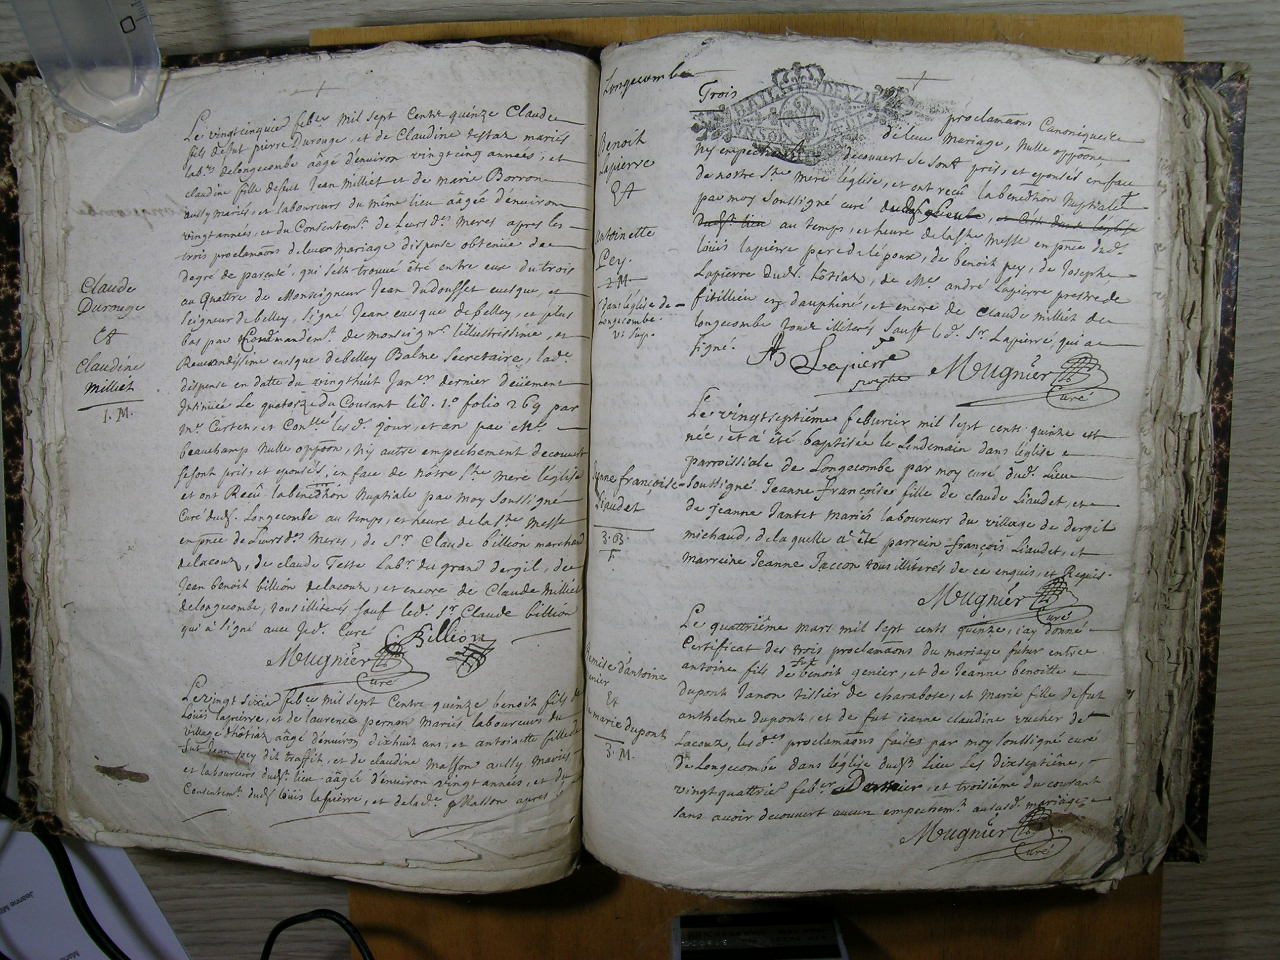 Claude
Durouge
Et
Claudine
Milliet
1. M.
Le vingtcinquie feber mil sept Cents quinze Claude
fils de fut pierre Durouge, et de Claudine testaz mariés
labrs de longecombe aâgé d'environ vingt cinq années, et
claudine fille de fut Jean Milliet et de marie Borron
aussy mariés, et laboureurs du même lieu aagée d'environ
vingt années, et du Consentemt de Leurs des Meres apres les
trois proclamaons de leur mariage dispense obtenue de
degré de parenté, qui s'est trouvé être entre eux du trois
au Quatre de Monseigneur Jean dudousset evesque, et
seigneur de belley, signé Jean evesque de belley, et plus
bas par Commandemt de monseignr l'illustrissime, et
Reverendissime evesque de belley Balme Secretaire, lade
dispense en datte du vingthuit Janer dernier
Insinuée Le quatorze du Courant lib. 1.o folio 269 par
mr Curtet, et Contlle les d. jour, et an par Mr.
beauchamp Nulle oppoon, N'y autre empechement decouvert
se sont pris, et epousés en face de nôtre Ste mere l'église
et ont Reçû la benedhon Nuptiale par moy Soussigné
Curé dud. Longecombe au temps, et heure de la Ste Messe
en pnce de Leurs des Meres, de Sr Claude billion marchand
delacoux, de claude Teste Labr du grand dergil, de
Jean benoit billion delacoux, et encore de Claude Milliet
de longecombe, tous illiterés sauf led. Sr Claude billion
qui a signé avec led. Curé C. Billion
Mugnier
Curé
Le vingt sixie feber mil sept Cents quinze benoit fils de
Loüis lapierre, et de laurence pernon Mariés laboureurs du
village d'hôtiaz aâgé d'environ dixhuit ans, et antoinette fille de
fut Jean pey dit traffit, et de claudine Masson aussy Mariés
et laboureurs dud. lieu aâgée d'environ vingt années, et du
Consentemt dud. loüis lapierre, et de lade Masson apres
Longecombe
Trois
Benoit
Lapierre
Et
Antoinette
Pey.
2. M.
dans l'église de
Longecombe
proclamaons Canoniques
de leur Mariage, Nulle oppoon
N'y empechement decouvert se sont pris, et epousés en face
de nostre Ste mere l'église, et ont reçû la benedhon Nuptiale
par moy soussigné curé
au temps, et heure de la Ste Messe en pnce dud.
loüis lapierre pere de l'époux, de benoit pey, de Joseph
Lapierre dud. hôtiaz, de Mre andré lapierre prestre de
fitillieu en dauphiné, et encore de Claude milliet de
longecombe tous illiterés sauf led. Sr Lapierre, qui a
signé.
A Lapierre
prestre
Mugnier
Curé
Jeanne françoise
Liaudet
3. B
F.
Le vingtseptiême feburier mil sept cents quinze est
née, et a été baptisée le Lendemain dans l'église
parroissiale de Longecombe par moy curé dud. Lieu
soussigné Jeanne Françoise fille de claude Liaudet, et
de Jeanne Jantet mariés laboureurs du village de dergil
michaud, de laquelle a été parrein françois Liaudet, et
marreine Jeanne Jaccon tous illiterés de ce enquis, et Requis.
Mugnier
Curé
Remise d'antoine
Genier
Et
de marie dupont
3. M.
Le quattriême mars mil sept cents quinze, j'ay donné
Certificat des trois proclamaons du mariage futur entre
antoine fils de fut benoit genier, et de Jeanne benoitte
dupont Janon tissier de charabote, et Marie fille de fut
anthelme dupont, et de fut jeanne claudine rucher de
Lacoux, les des proclamaons faites par moy soussigné curé
de Longecombe dans l'église dud. lieu Les dixseptiême,
vingtquattrie feber Dernier, et troisiême du courant
sans avoir decouvert aucun empechemt aud. mariage
Mugnier
Curé